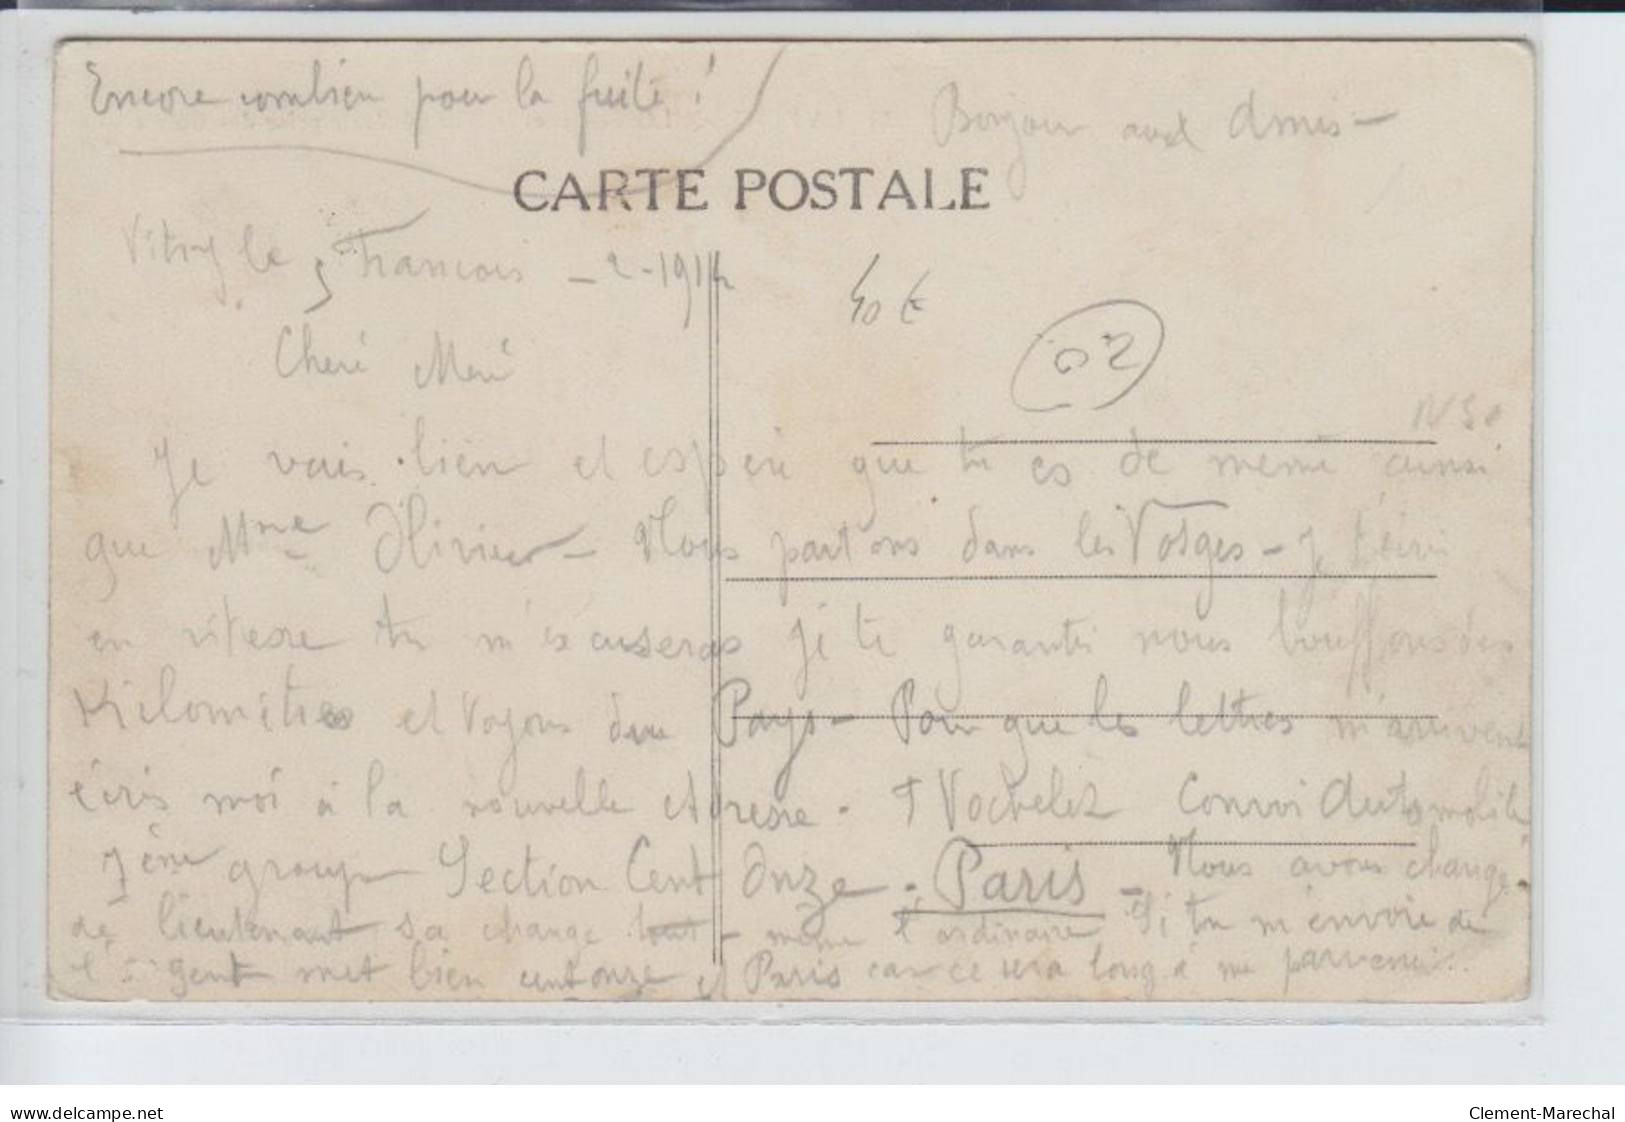 Encore combien pour la fuite !
Bonjour aux Amis -
CARTE POSTALE
Vitry le Francois - 2 - 1914
40 €
02
Cheré Meré
Je vais bien et esperé que tu es de meme ainsi
que Mme Olivier - Nous partons dans les Vosges - Je t'ecris
en vitesse tu m'excuseras Je te garantis nous bouffons des
Kilometres et voyons du Pays - Pour que les lettres m'arrivent
écris moi à la nouvelle adresse. Convoi Automobile
groupe Section Cent Onze - Paris - Nous avons changé
de lieutenant sa change tout - meme l'ordinaire Si tu m'envoie de
l'argent met bien cent onze et Paris car ce sera long à me parvenir.
www.delcampe.net
Clement-Marechal